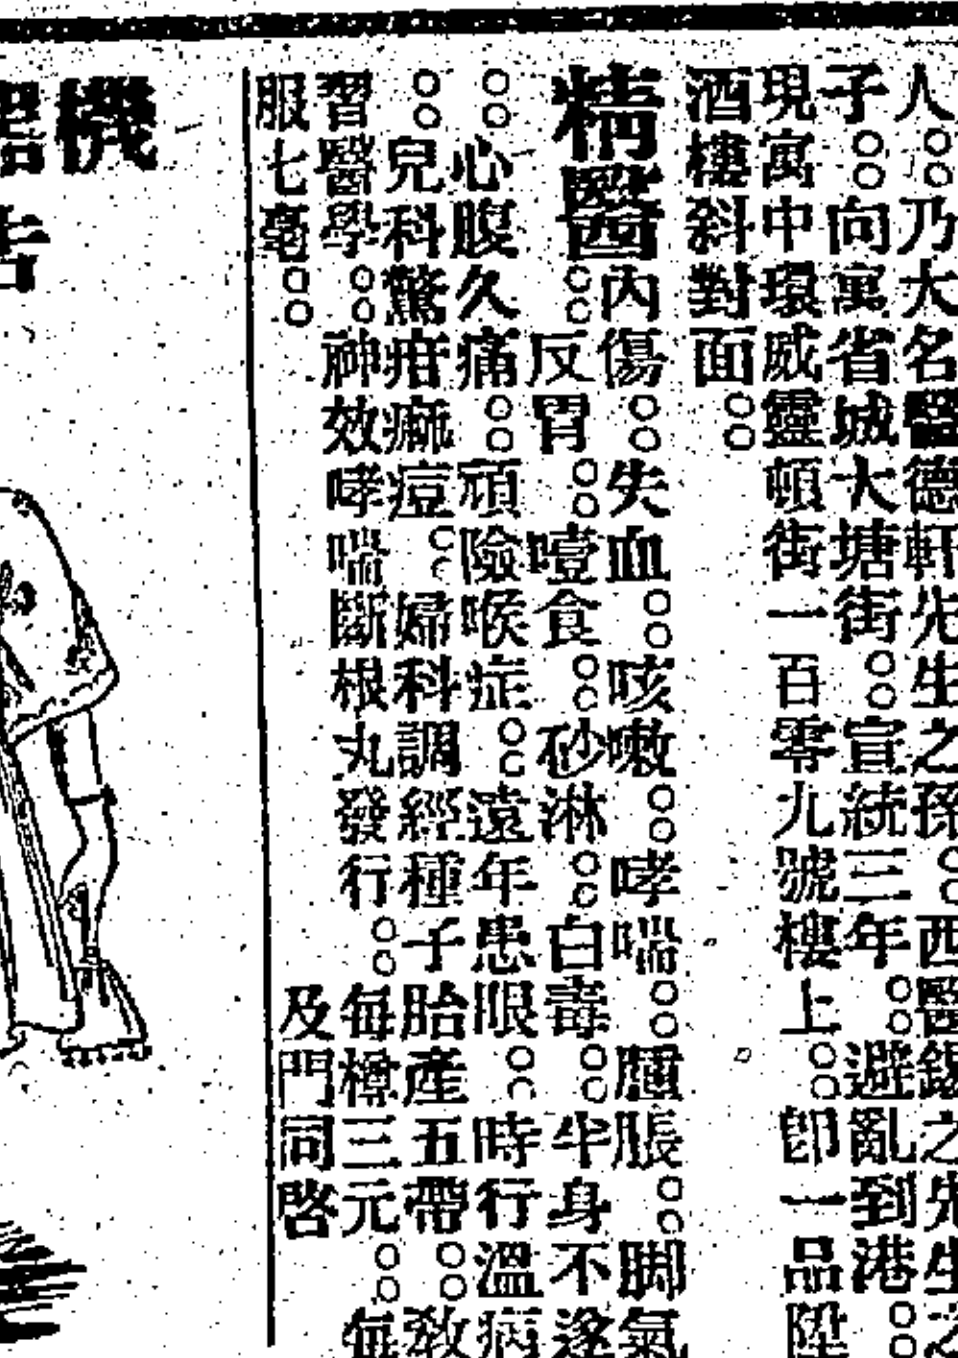 人。。乃大名醫德軒先生之孫。。西醫錫之先生之
子。。向寓省城大塘街。。宣統三年。。避亂到港。。
現寓中環威靈頓街一百零九號樓上。。卽一品陞
酒樓斜對面。。
精醫。。內傷。。失血。。咳嗽。。哮喘。。臌脹。。脚氣
反胃。。噎食。。砂淋。。白毒。。半身不遂
。。心腹久痛。。頑險喉症。。遠年患眼。。時行溫病
。。兒科驚疳癲痘。。婦科調經種子胎產五帶。。教
習醫學。。神效哮喘斷根丸發行。。每樽三元。。每
服七毫。。及門同啓
機